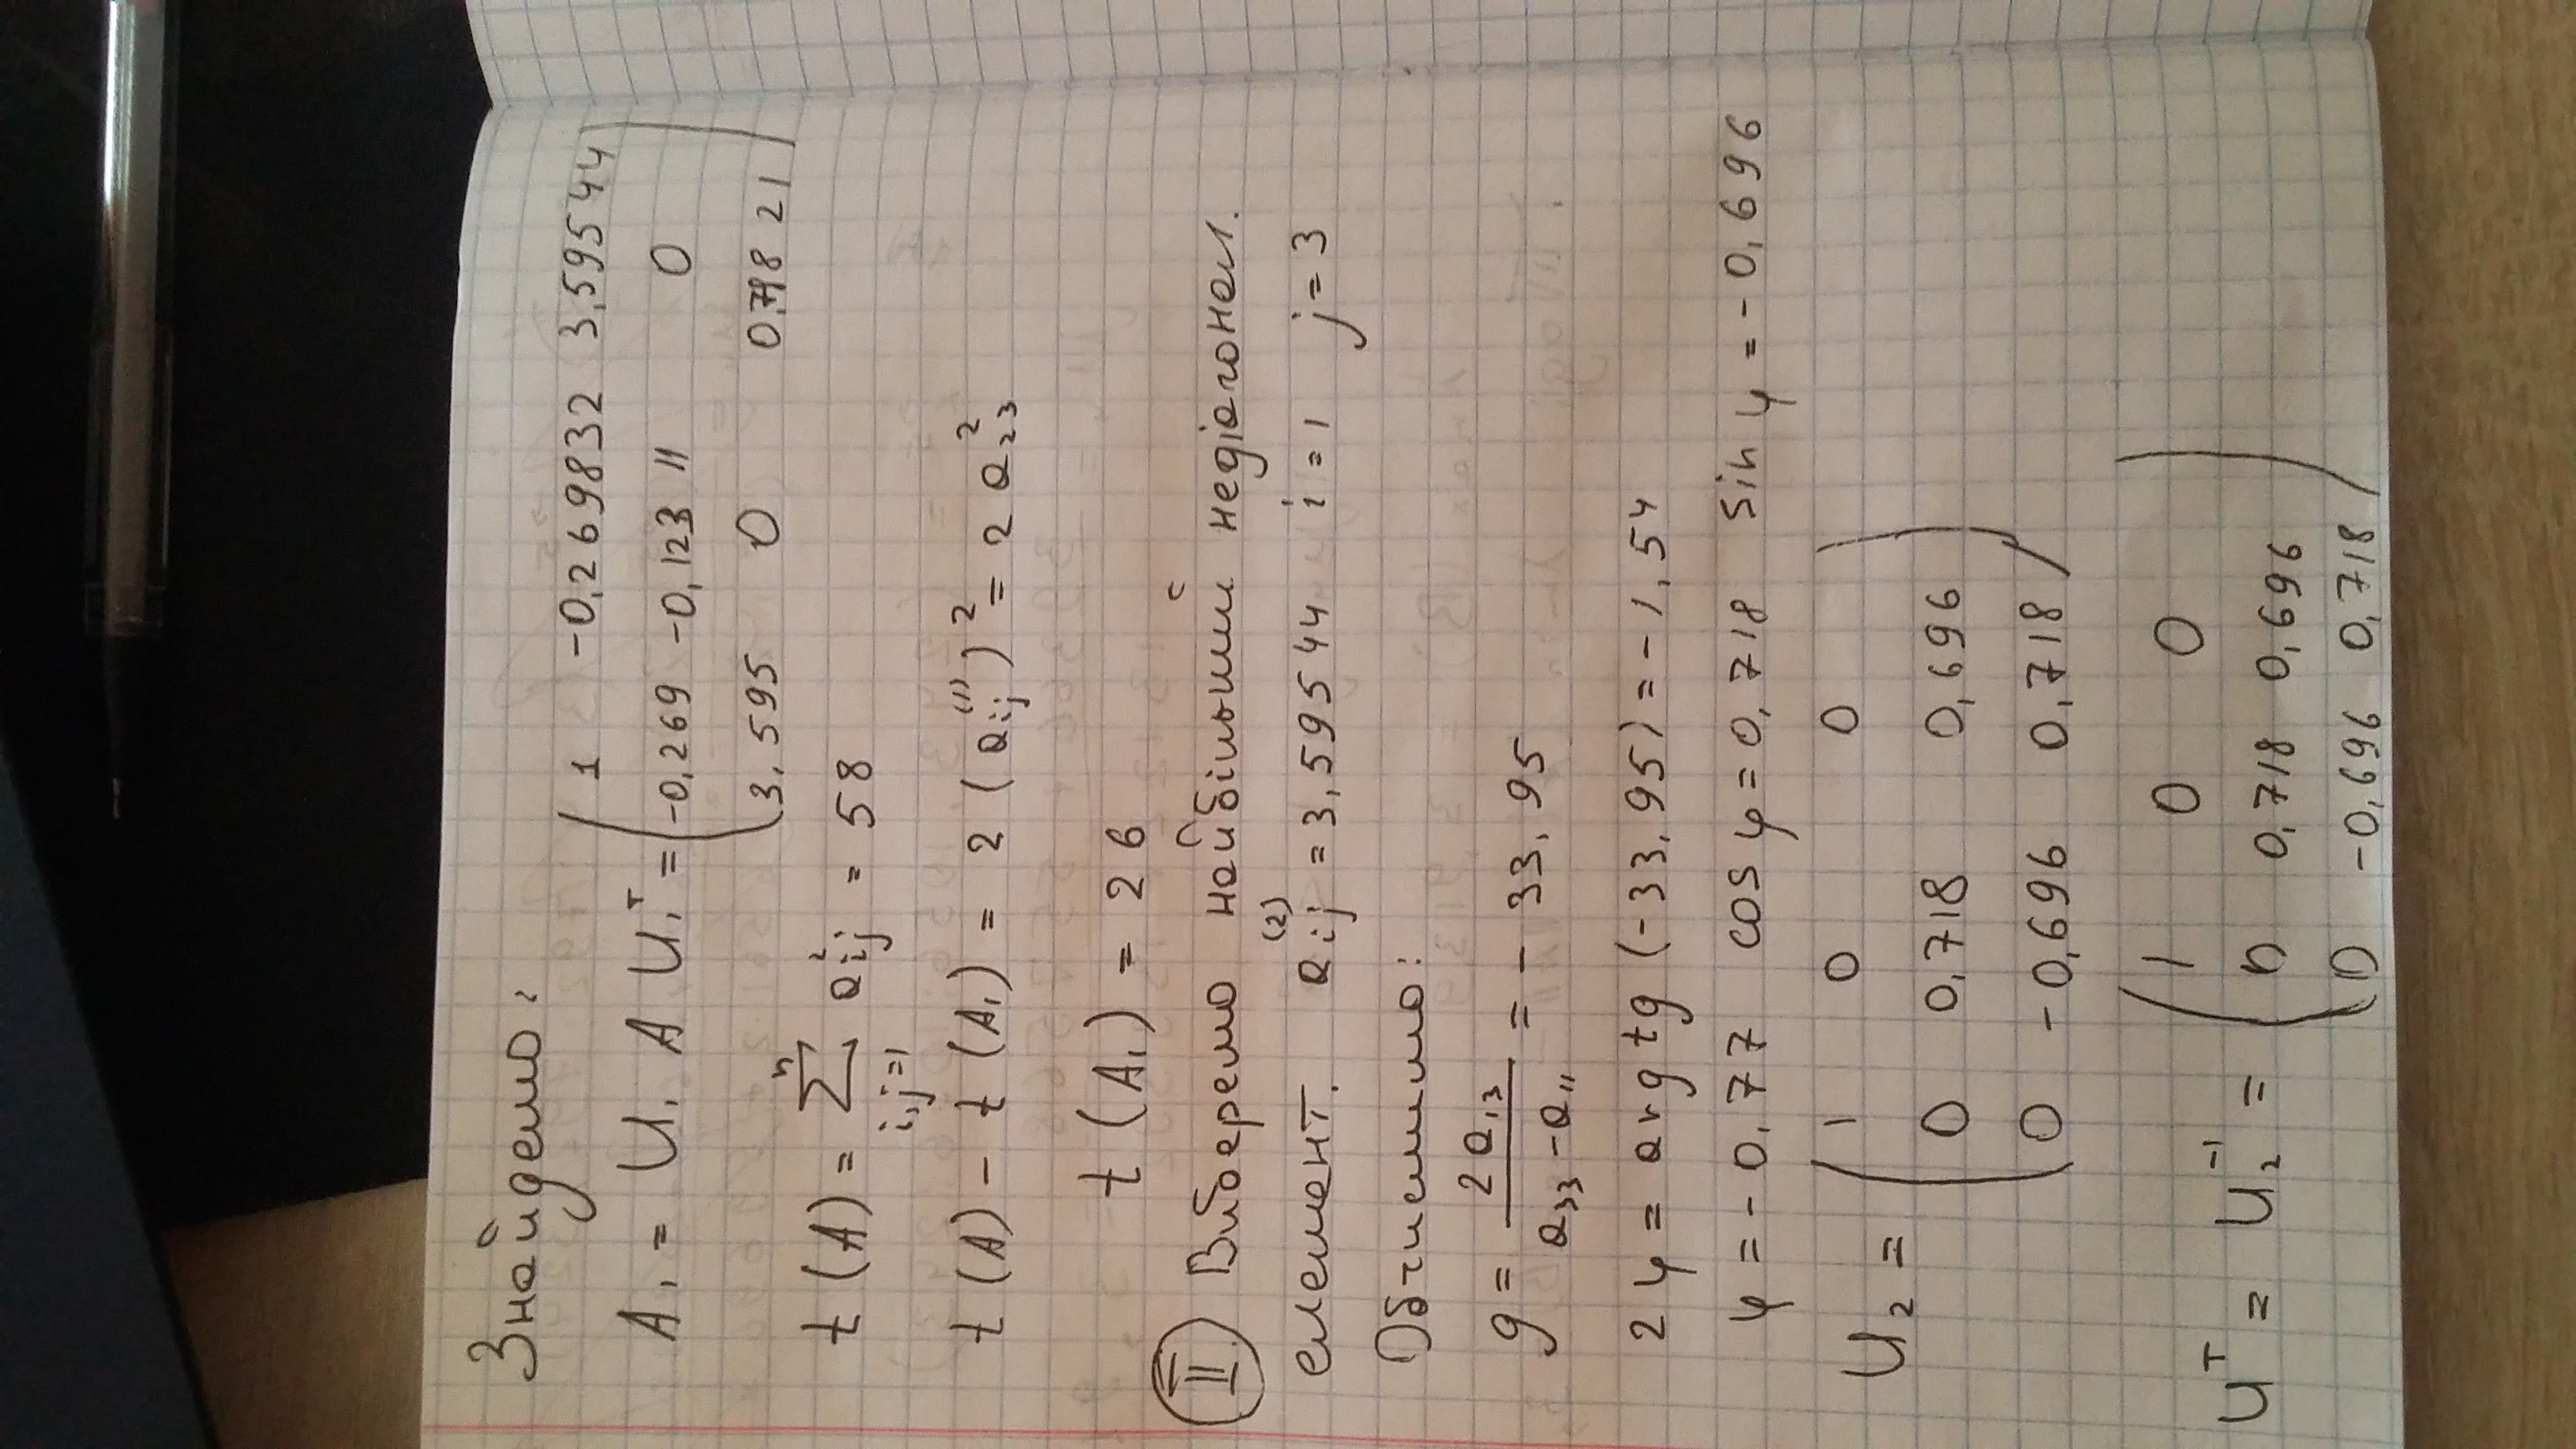 Знайдемо:
A₁ = U₁ A U₁ᵀ = ( 1 -0,269832 3,59544
-0,269 -0,123 11 0
3,595 0 21 )
t (A) = Σ (i,j=1, n) a²ij = 58
t (A) - t (A₁) = 2 (aij⁽¹⁾)² = 2 a²₂₃
t (A₁) = 26
II. Виберемо найбільший недіагонал.
елемент. aij⁽²⁾ = 3,59544 i = 1 j = 3
Обчислимо:
g = 2a₁₃ / (a₃₃ - a₁₁) = - 33,95
2φ = argtg (-33,95) = -1,54
φ = -0,77 cos φ = 0,718 sin φ = -0,696
U₂ = ( 1 0 0
0 0,718 0,696
0 -0,696 0,718 )
Uᵀ = U₂⁻¹ = ( 1 0 0
0 0,718 0,696
0 -0,696 0,718 )